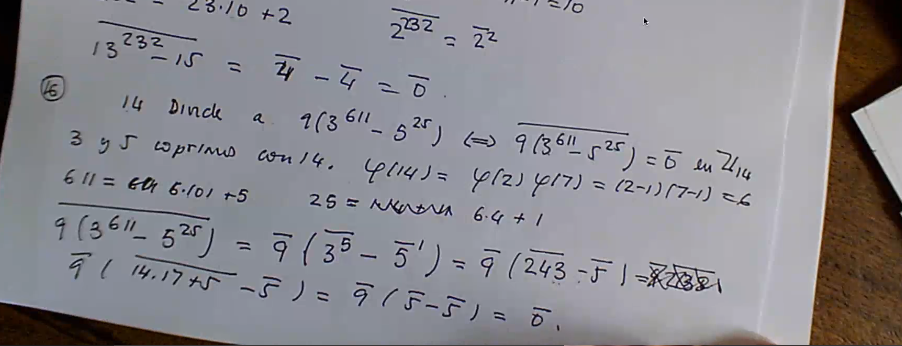 23.10 + 2
= 10
2^232 = 2^2
13^232 - 15 = 4 - 4 = 0.
16
14 Divide a 9(3^611 - 5^25) <=> 9(3^611 - 5^25) = 0 en Z/14
3 y 5 coprimos con 14. φ(14) = φ(2) φ(7) = (2-1)(7-1) = 6
611 = 6.101 + 5 25 = 6.4 + 1
9(3^611 - 5^25) = 9(3^5 - 5^1) = 9(243 - 5) =
9(14.17+5 - 5) = 9(5-5) = 0.